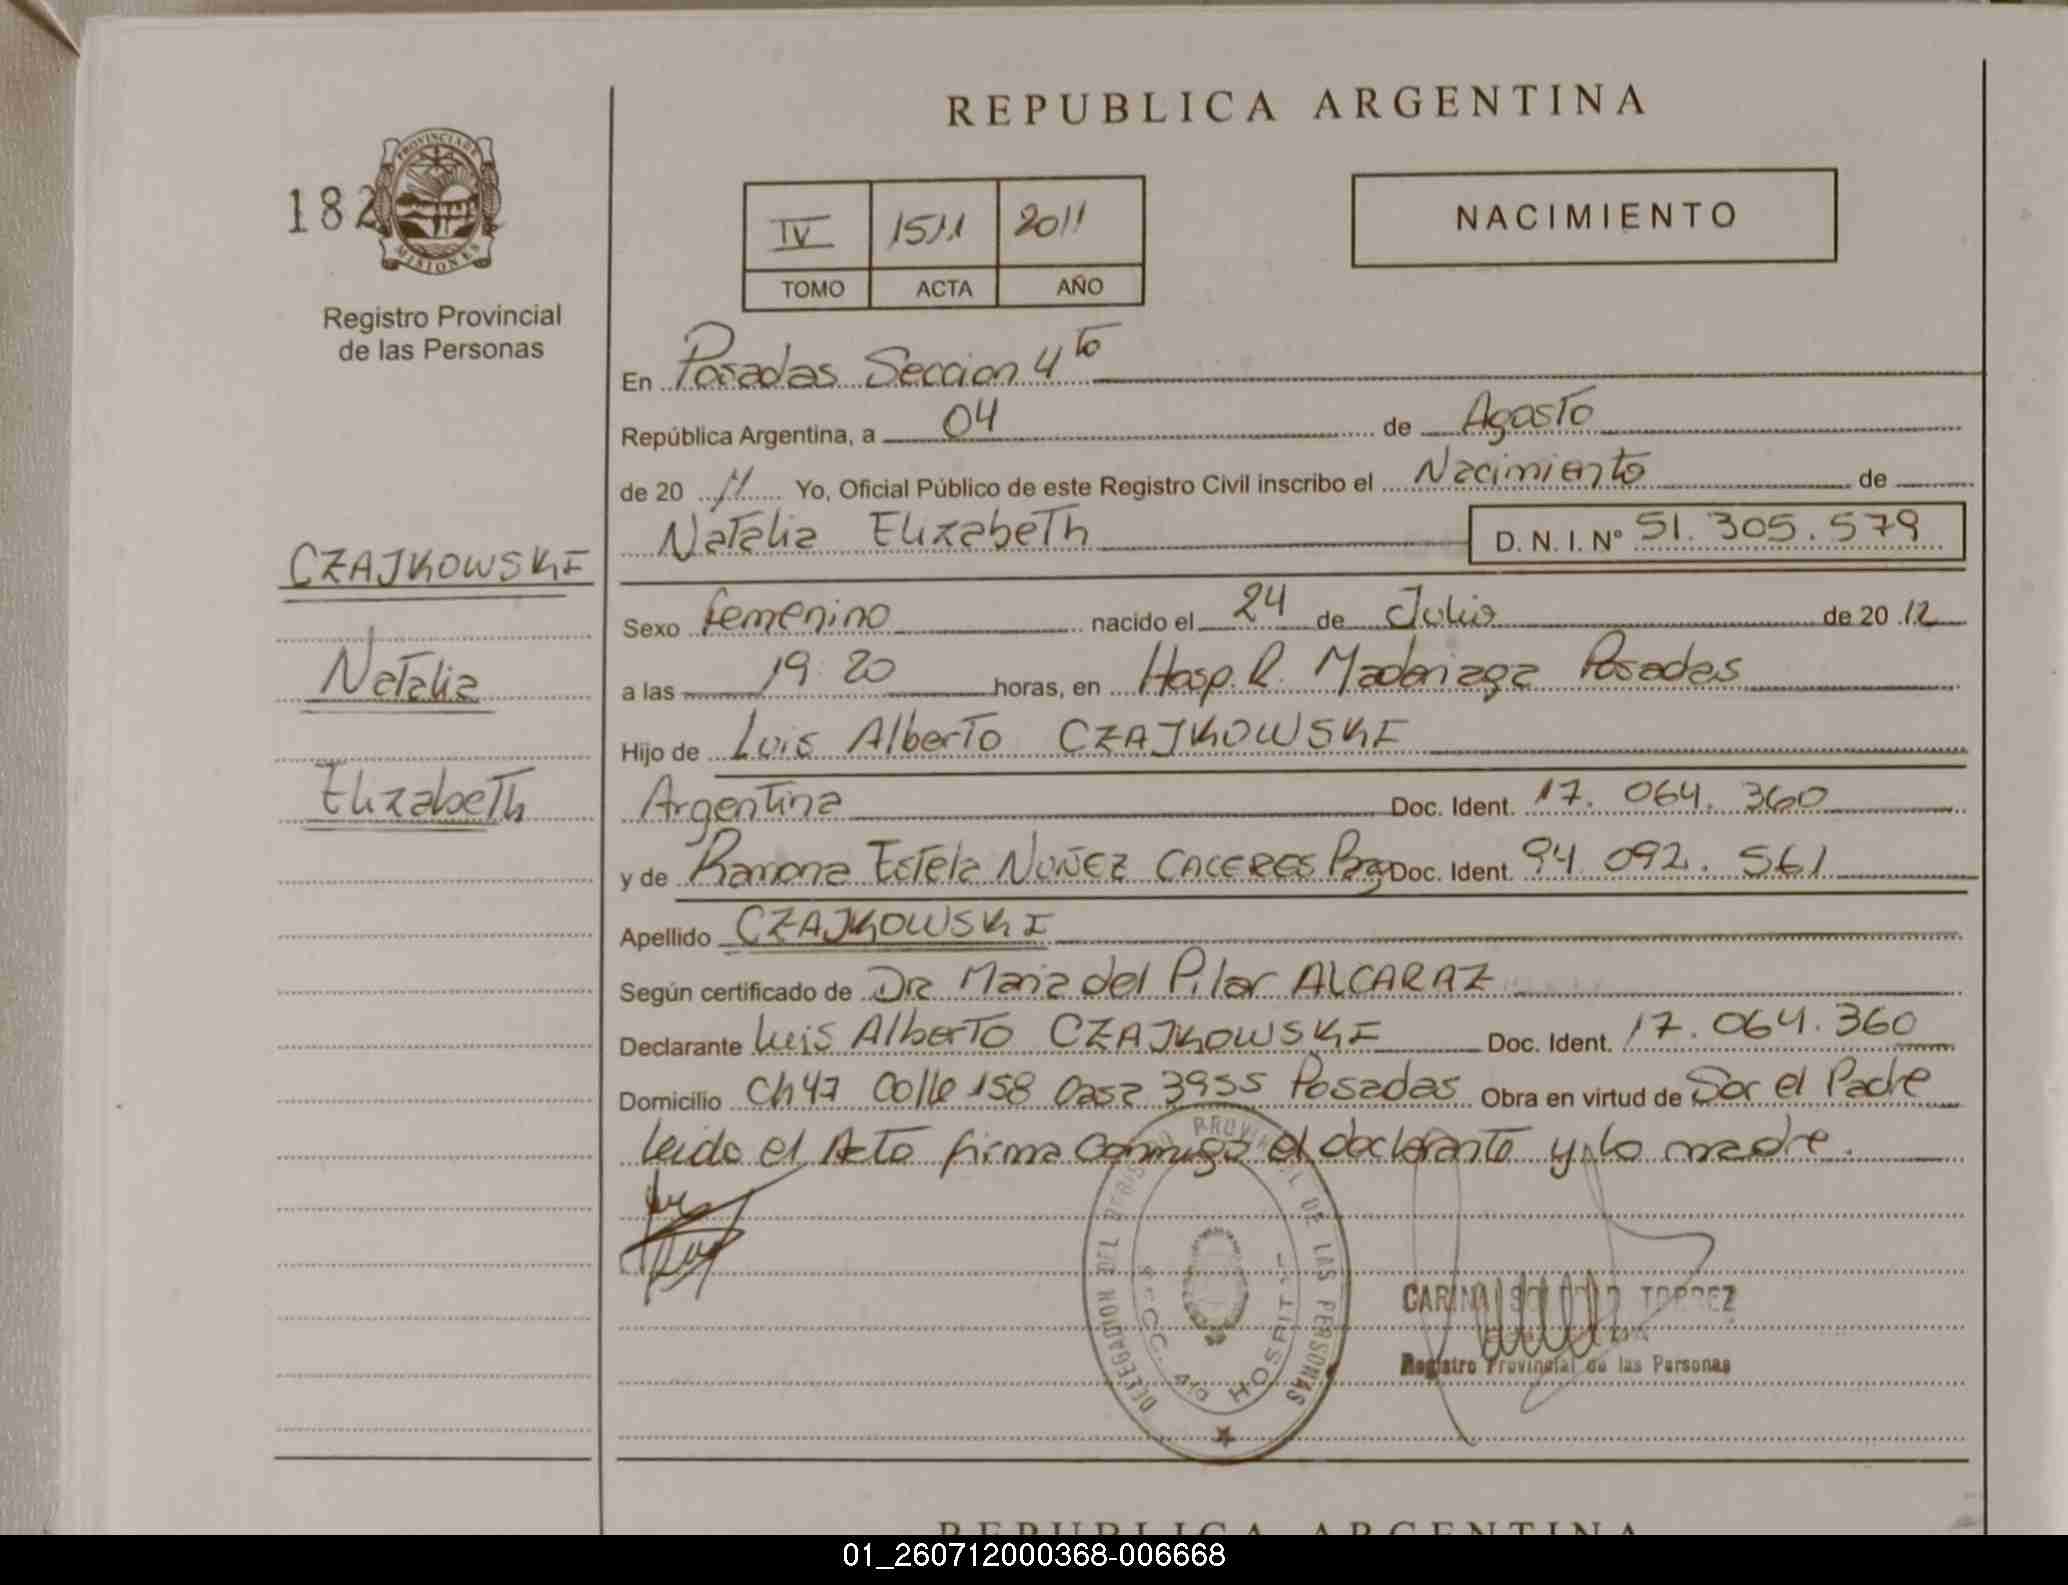 REPUBLICA ARGENTINA
182
PROVINCIA DE
MISIONES
Registro Provincial
de las Personas
IV 1511 2011
TOMO ACTA AÑO
NACIMIENTO
En Posadas Seccion 4to
República Argentina, a 04 de Agosto
de 20 11 Yo, Oficial Público de este Registro Civil inscribo el Nacimiento de
Natalia Elizabeth D. N. I. Nº 51.305.579
CZAJKOWSKI
Natalia
Elizabeth
Sexo Femenino nacido el 24 de Julio de 20 12
a las 19:20 horas, en Hosp. R. Madariaga Posadas
Hijo de Luis Alberto CZAJKOWSKI
Argentina Doc. Ident. 17.064.360
y de Ramona Estela NUÑEZ CACERES Prag Doc. Ident. 94.092.561
Apellido CZAJKOWSKI
Según certificado de Dra Maria del Pilar ALCARAZ
Declarante Luis Alberto CZAJKOWSKI Doc. Ident. 17.064.360
Domicilio Ch 47 Calle 158 Casa 3955 Posadas Obra en virtud de Ser el Padre
leido el Acta firma conmigo el declarante y la madre.
PROVINCIAL DE LAS PERSONAS
SECC. 4to HOSPIT
CARINA TORREZ
Registro Provincial de las Personas
REPUBLICA ARGENTINA
01_260712000368-006668